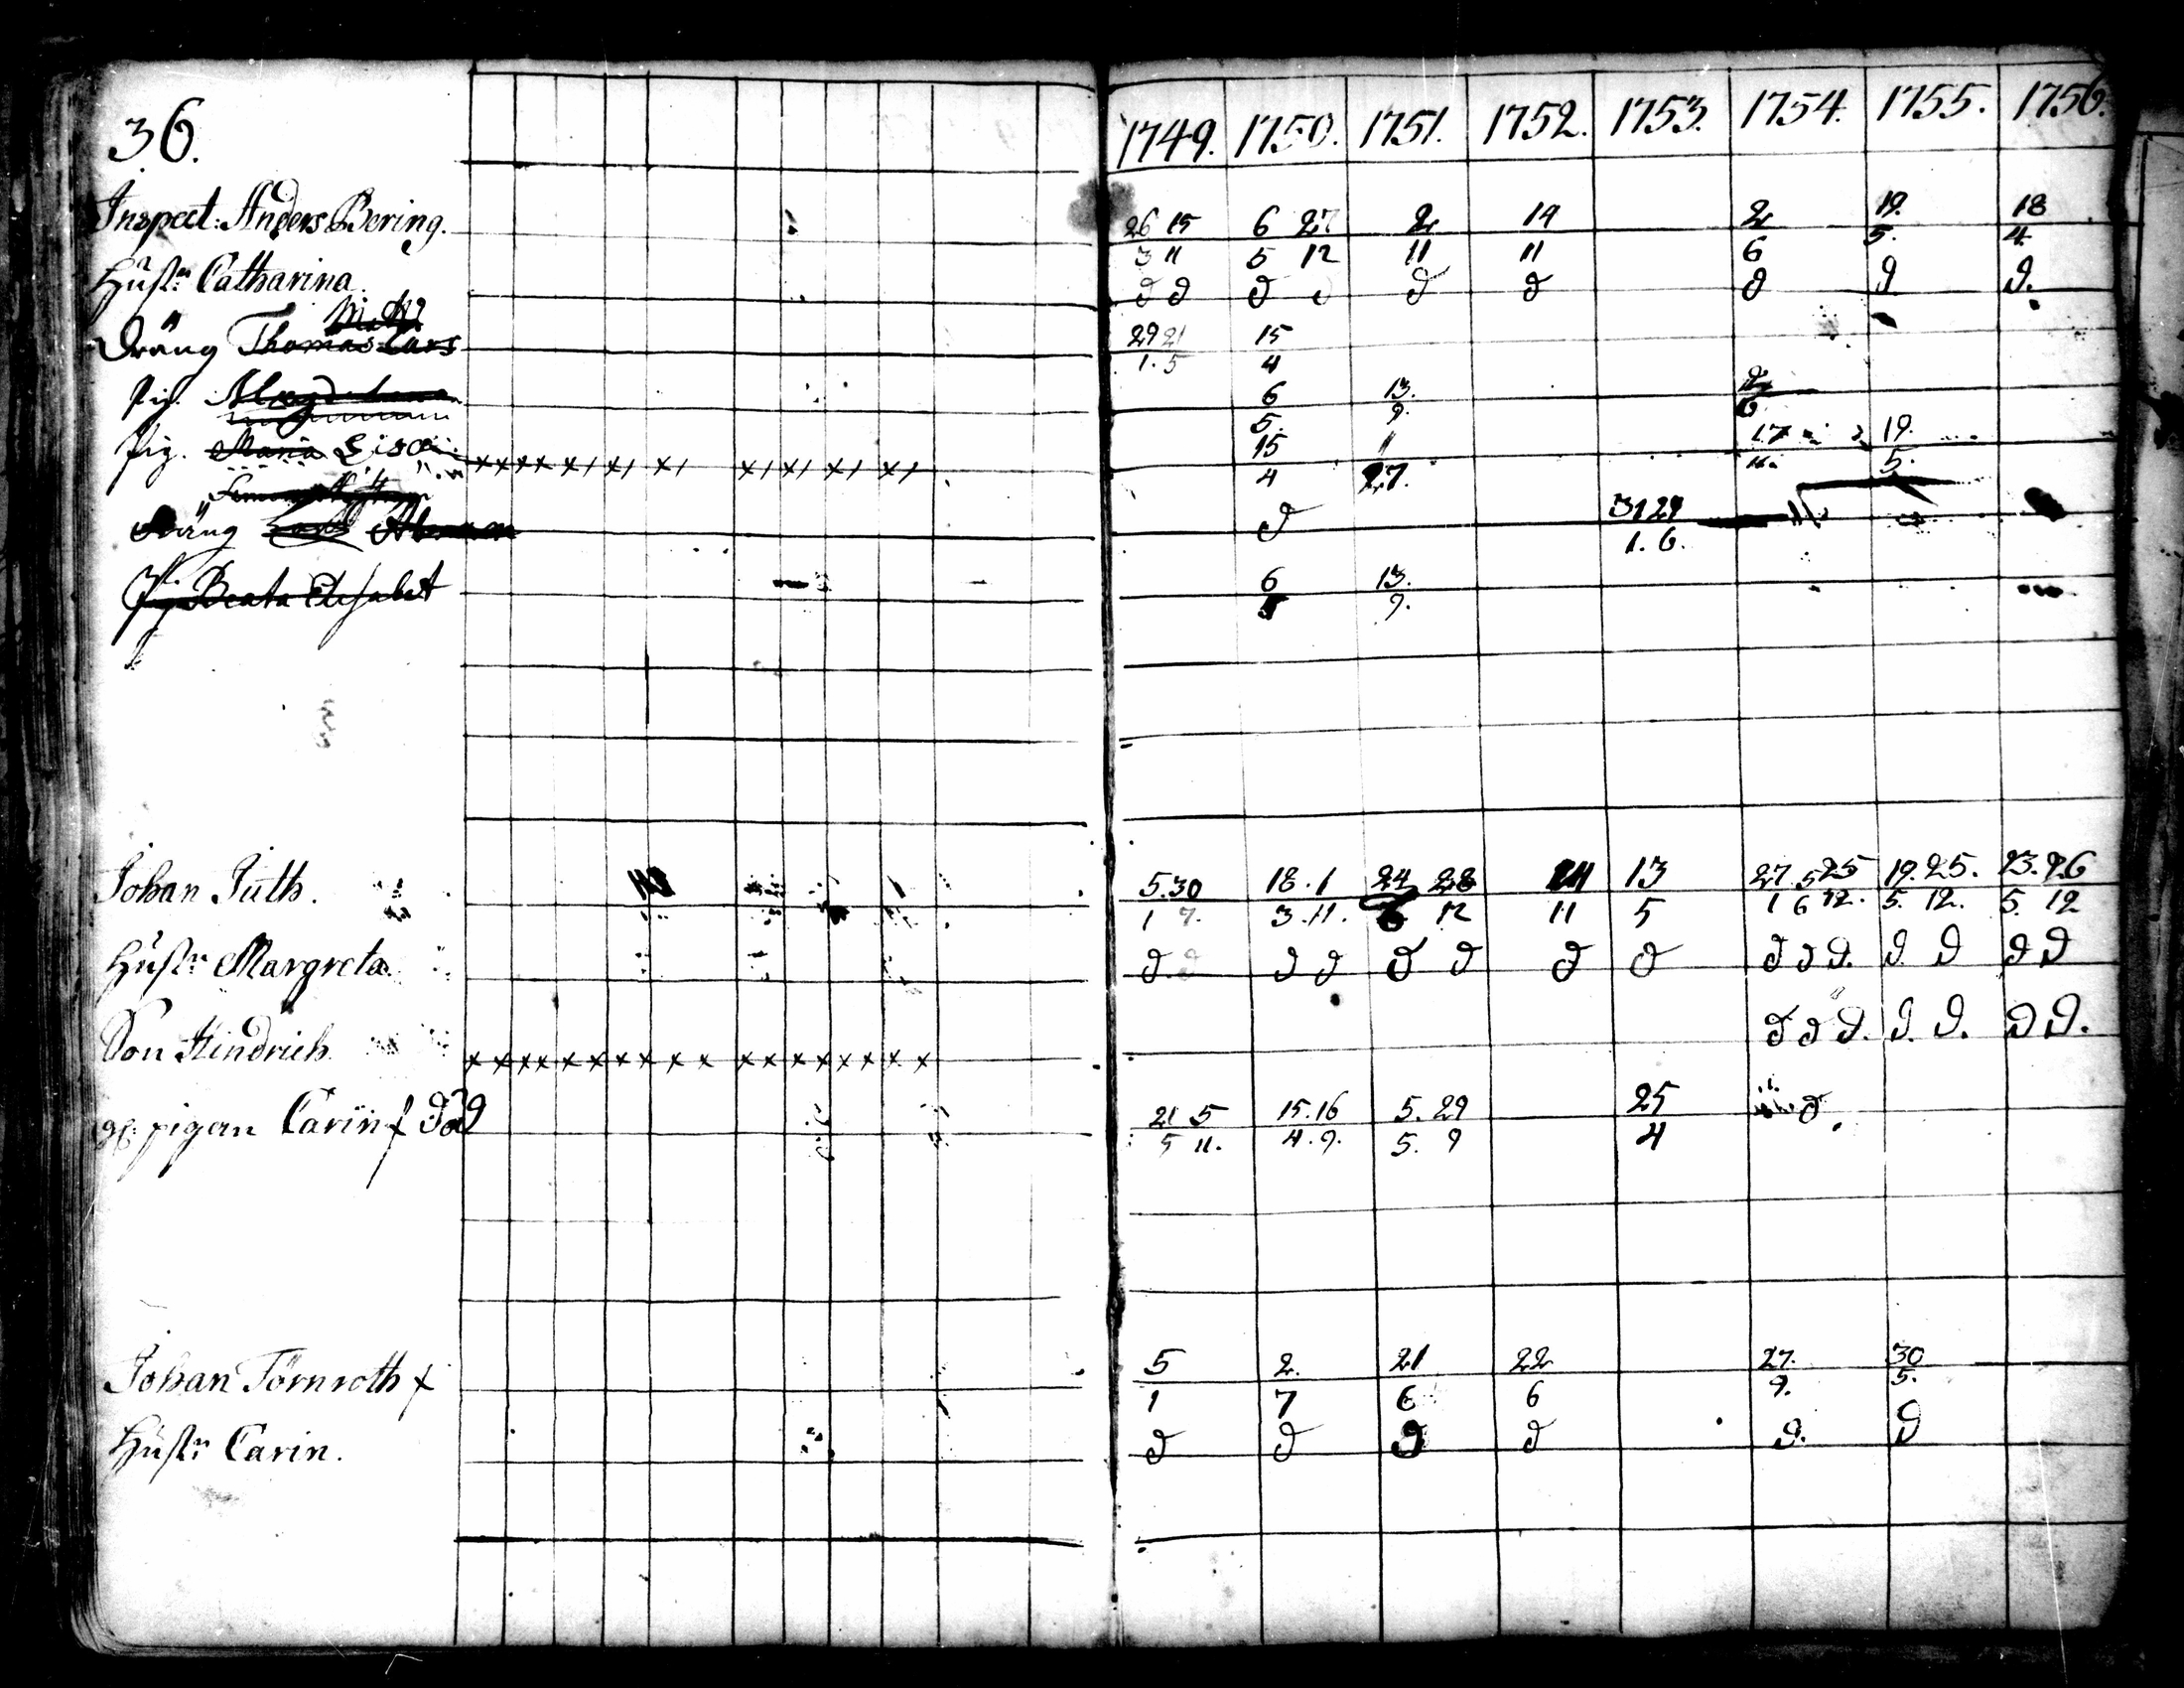 36.
1749. 1750. 1751. 1752. 1753. 1754. 1755. 1756.
Inspect: Anders Bering. 26 15 6 27 2 14 2 19. 18
3 11 5 12 11 11 6 5. 4.
Hustr Catharina. d d d d d d d d.
Dräng Thomas Lars 29 21 15
1. 5 4
Pig. 6 13.
5. 9.
Pig. Maria Lisa 15 11 17 19.
xxxx x/ x/ x/ x/ x/ x/ x/ 4 27. 5.
Dräng d 31 29
1. 6.
Pig. Beata Elisabet 6 13.
5 9.
Johan Juth. 5. 30 18. 1 24 28 24 13 27 5 25 19. 25. 23. 26
1 7. 3. 11. 6 12 11 5 1 6 12. 5. 12. 5. 12
Hustr Margreta. d. d d d d d d d d d d. d d d d
Son Hindrich. d d d. d. d. d d.
x x x x x x x x x x x x x x x x x
pigan Carin f Död 21 5 15. 16 5. 29 25 d.
5 11. 4. 9. 5. 9 4
Johan Törnroth f 5 2. 21 22 27. 30
1 7 6 6 9. 5.
Hustr Carin. d d d d d. d